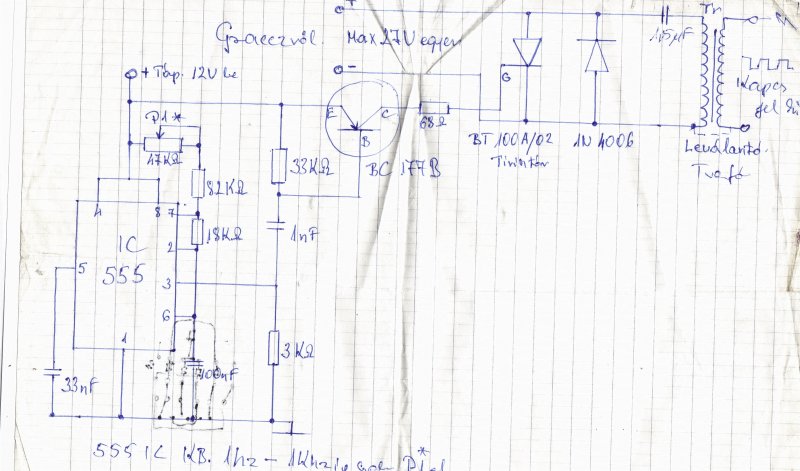 Graeczről.
+
Max 27V egyen
-
+ Táp. 12V be
P1*
47KΩ
82KΩ
18KΩ
33KΩ
1nF
E
C
B
BC 177B
68Ω
G
BT 100A/02
Tirisztor
1N 4006
Tr
Leválasztó
Trafó
4
8
7
2
3
6
5
1
IC
555
33nF
100nF
3KΩ
555 IC KB. 1hz - 1Khz